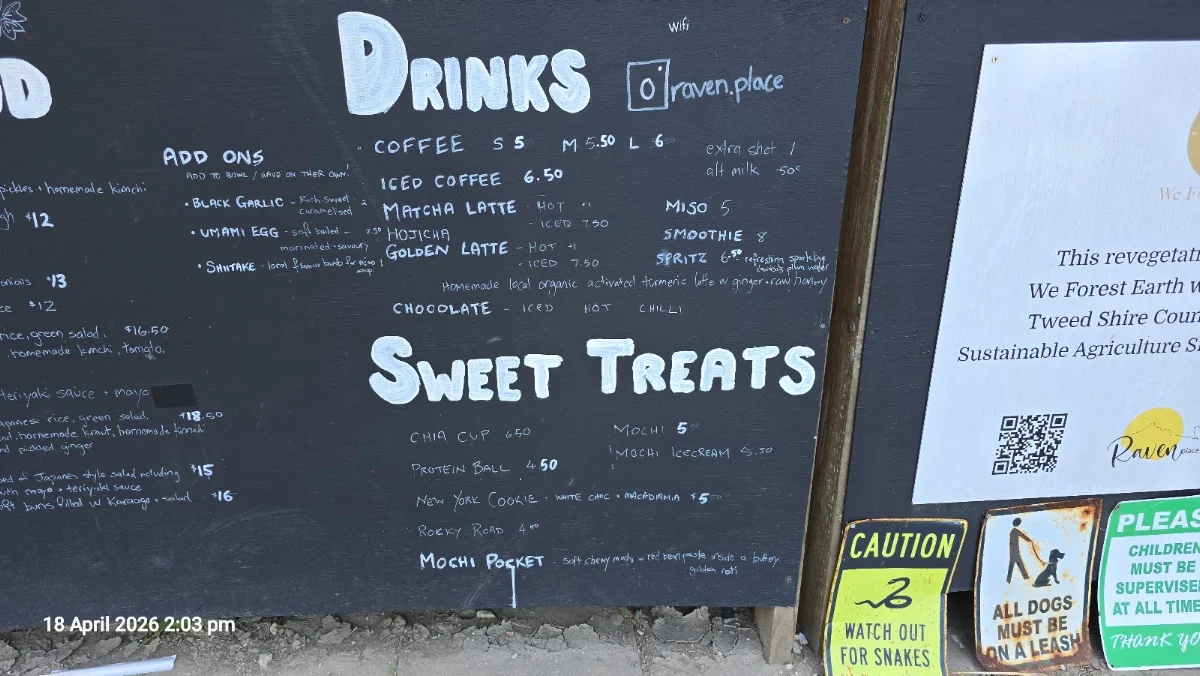 OD
pickles + homemade kimchi
$12
$13
$12
rice, green salad. $16.50
homemade kimchi, tomato.
teriyaki sauce + mayo
rice, green salad, $18.50
homemade kraut, homemade kimchi
pickled ginger
of Japanese style salad including $15
mayo + teriyaki sauce
buns filled w Karaage + salad $16
ADD ONS
ADD TO BOWL / HAVE ON THEIR OWN!
• BLACK GARLIC - Rich-sweet 2
caramelised
• UMAMI EGG - soft boiled - 2.50
marinated - savoury
• SHIITAKE - local flavour bomb for 1
wifi
DRINKS
raven.place
COFFEE S 5 M 5.50 L 6
extra shot 1
alt milk .50c
ICED COFFEE 6.50
MATCHA LATTE - HOT
- ICED 7.50
HOJICHA
GOLDEN LATTE - HOT
- ICED 7.50
MISO 5
SMOOTHIE 8
SPRITZ 6.50 refreshing sparkling
plum water
Homemade local organic activated turmeric latte w ginger + raw honey
CHOCOLATE - ICED HOT CHILLI
SWEET TREATS
CHIA CUP 650
PROTEIN BALL 4.50
NEW YORK COOKIE - WHITE CHOC + MACADAMIA $5
ROCKY ROAD 4
MOCHI 5
MOCHI ICECREAM 5.50
MOCHI POCKET - soft chewy mochi w red bean paste inside a buttery
golden roti
We Fo
This revegetati
We Forest Earth w
Tweed Shire Coun
Sustainable Agriculture S
Raven place
CAUTION
WATCH OUT
FOR SNAKES
ALL DOGS
MUST BE
ON A LEASH
PLEAS
CHILDREN
MUST BE
SUPERVISE
AT ALL TIME
THANK YO
18 April 2026 2:03 pm